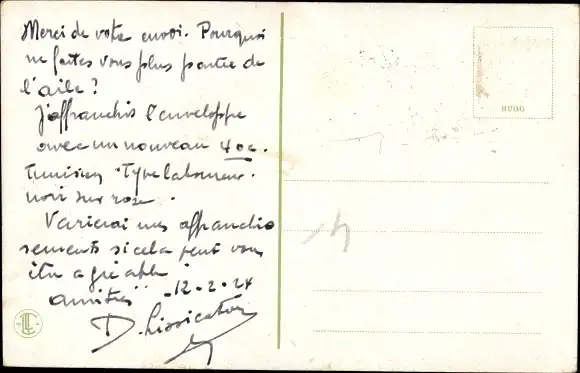 Merci de votre envoi. Pourquoi
ne faites vous plus partie de
l'aile ?
J'affranchis l'enveloppe
avec un nouveau 40c.
tunisien "Type laboureur"
noir sur rose.
Varierai mes affranchis
sements si cela peut vous
être agréable
Amitiés
12-2-24
D.
HUGG